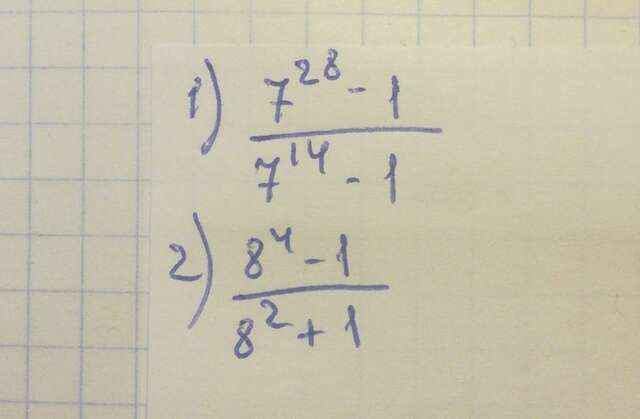 1) (7^28 - 1) / (7^14 - 1)
2) (8^4 - 1) / (8^2 + 1)